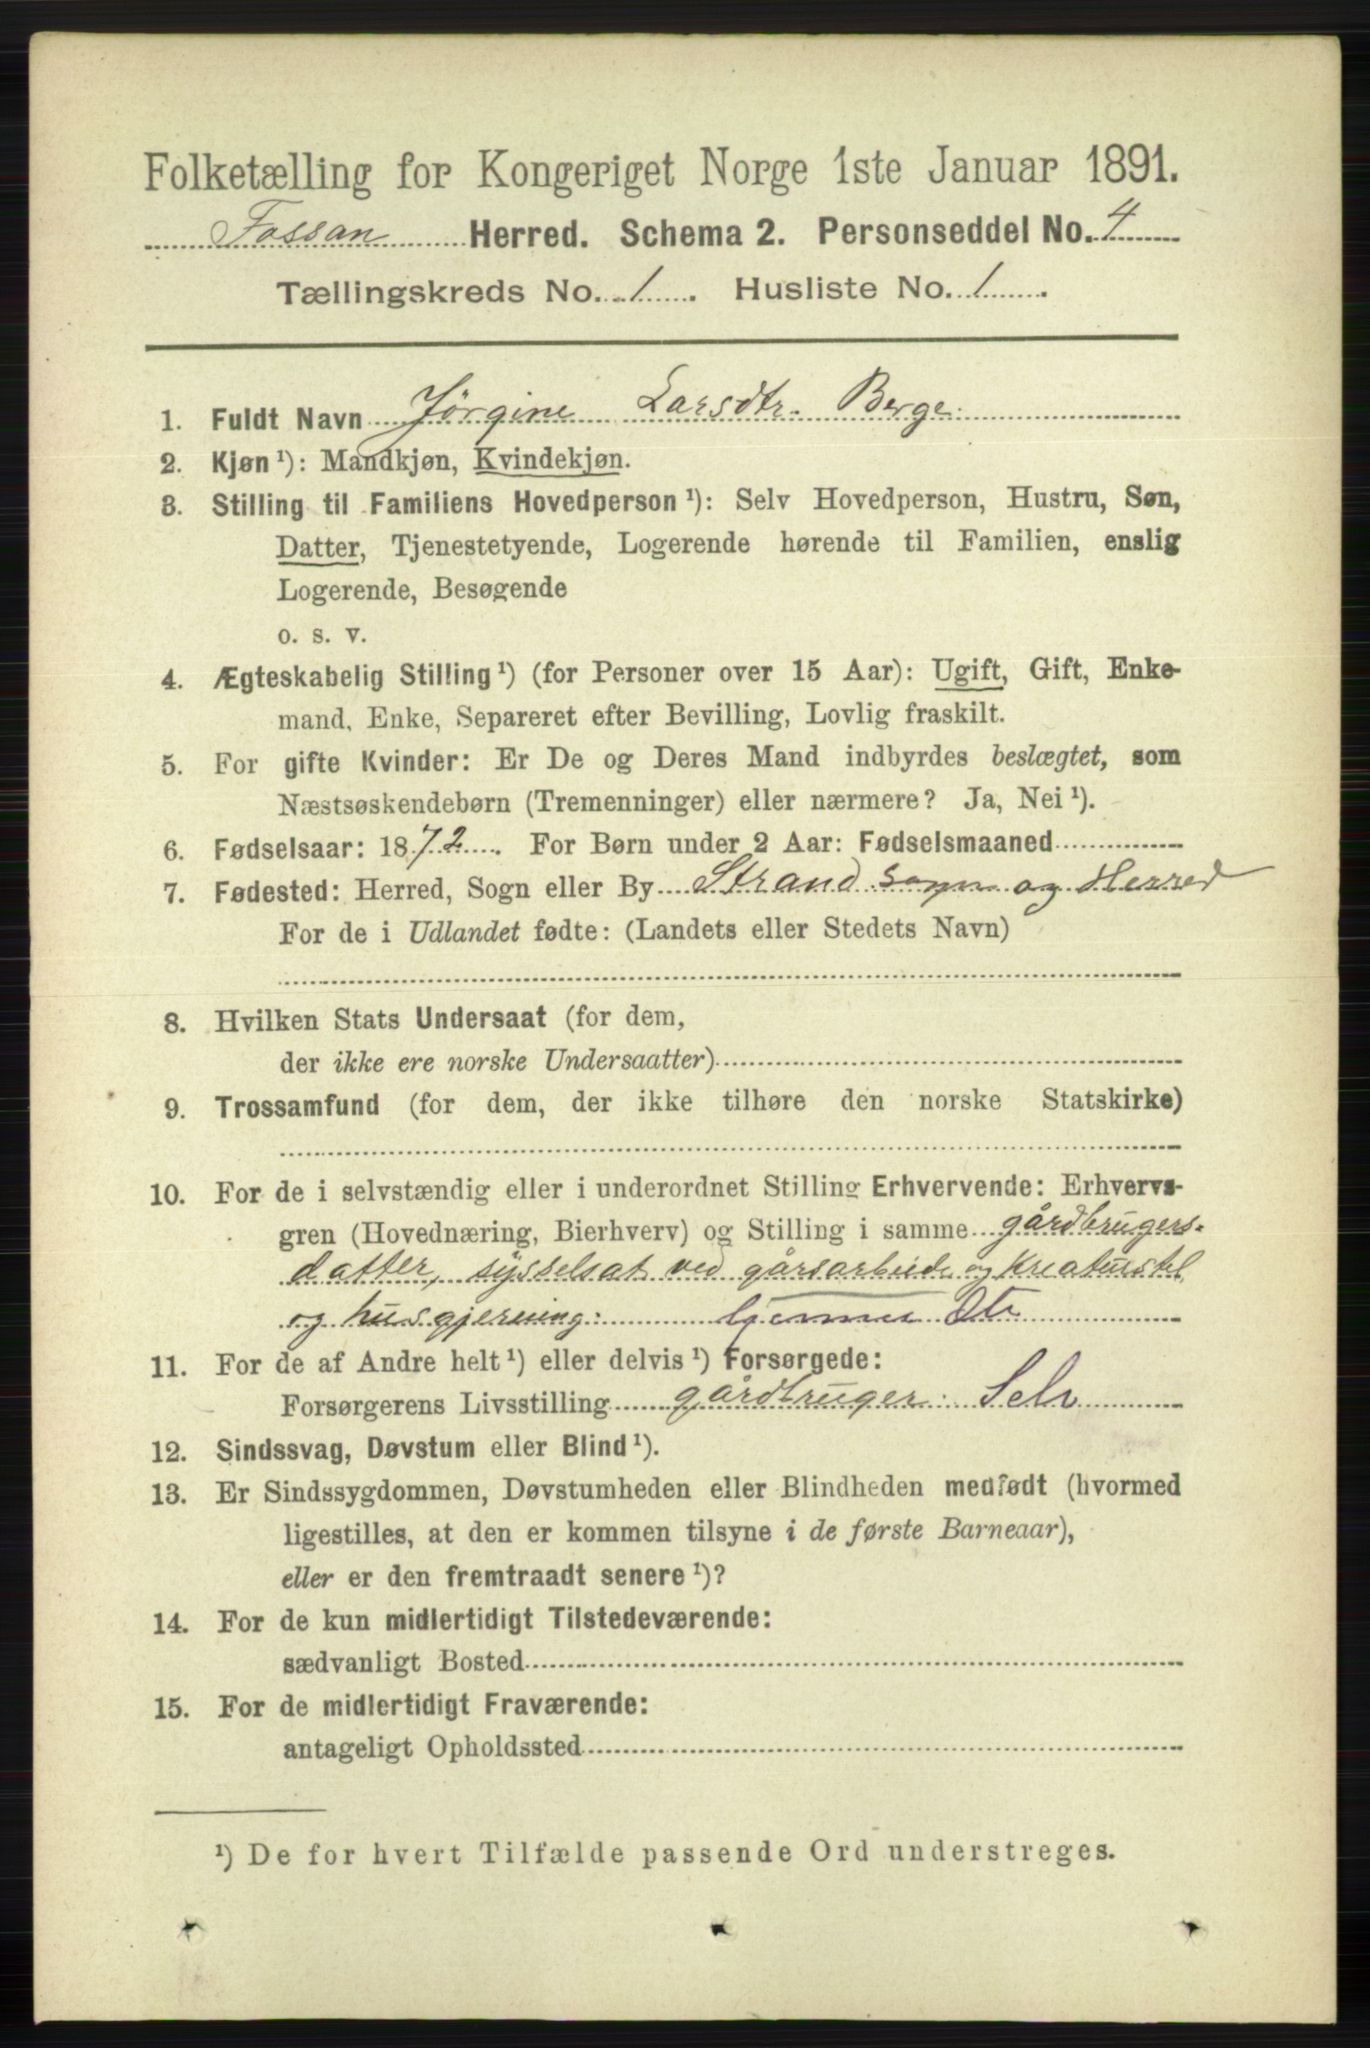 Folketælling for Kongeriget Norge 1ste Januar 1891.
Fossan Herred. Schema 2. Personseddel No. 4
Tællingskreds No. 1. Husliste No. 1.
1. Fuldt Navn Jørgine Larsdtr. Berge.
2. Kjøn ¹): Mandkjøn, Kvindekjøn.
3. Stilling til Familiens Hovedperson ¹): Selv Hovedperson, Hustru, Søn,
Datter, Tjenestetyende, Logerende hørende til Familien, enslig
Logerende, Besøgende
o. s. v.
4. Ægteskabelig Stilling ¹) (for Personer over 15 Aar): Ugift, Gift, Enke-
mand, Enke, Separeret efter Bevilling, Lovlig fraskilt.
5. For gifte Kvinder: Er De og Deres Mand indbyrdes beslægtet, som
Næstsøskendebørn (Tremenninger) eller nærmere? Ja, Nei ¹).
6. Fødselsaar: 1872. For Børn under 2 Aar: Fødselsmaaned
7. Fødested: Herred, Sogn eller By Strand sogn og Herred
For de i Udlandet fødte: (Landets eller Stedets Navn)
8. Hvilken Stats Undersaat (for dem,
der ikke ere norske Undersaatter)
9. Trossamfund (for dem, der ikke tilhøre den norske Statskirke)
10. For de i selvstændig eller i underordnet Stilling Erhvervende: Erhvervs-
gren (Hovednæring, Bierhverv) og Stilling i samme gårdbrugers-
datter, sysselsat ved gårsarbeide og kreaturstel
og husgjerning:
11. For de af Andre helt ¹) eller delvis ¹) Forsørgede:
Forsørgerens Livsstilling gårdbruger: Selv
12. Sindssvag, Døvstum eller Blind ¹).
13. Er Sindssygdommen, Døvstumheden eller Blindheden medfødt (hvormed
ligestilles, at den er kommen tilsyne i de første Barneaar),
eller er den fremtraadt senere ¹)?
14. For de kun midlertidigt Tilstedeværende:
sædvanligt Bosted
15. For de midlertidigt Fraværende:
antageligt Opholdssted
¹) De for hvert Tilfælde passende Ord understreges.